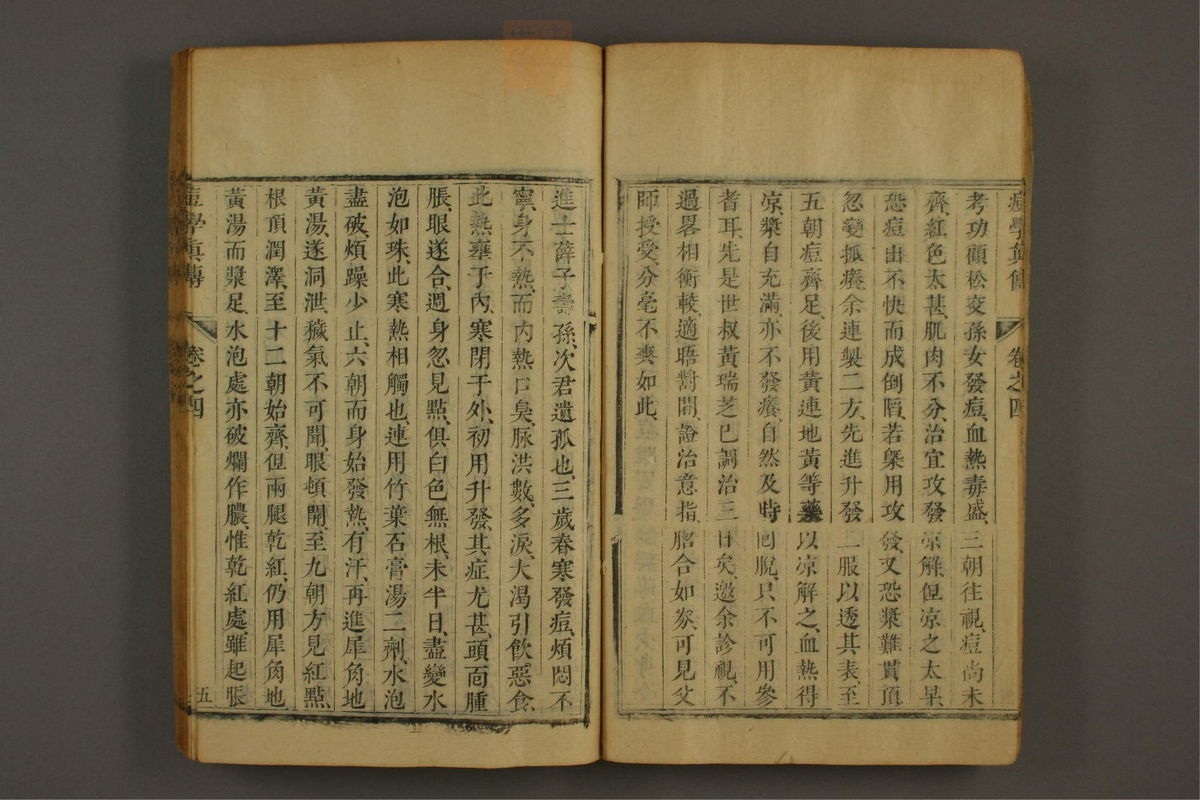 痘學真傳 卷之四
考功顧松交孫女發痘、血熱毒盛、三朝往視、痘尚未
齊、紅色太甚、肌肉不分、治宜攻發凉解、但凉之太早、
恐痘出不快而成倒陷、若槩用攻發、又恐漿難貫頂、
忽變抓癢、余連製二方、先進升發一服以透其表、至
五朝痘齊足、後用黃連地黃等藥以凉解之、血熱得
凉、漿自充滿、亦不發癢、自然及時回脫、只不可用參
耆耳、先是世叔黃瑞芝已調治三日矣、邀余診視、不
過畧相衡較、適晤對間、證治意指、脗合如家、可見父
師授受、分毫不爽如此、
進士薛子壽孫、次君遺孤也、三歲春寒發痘、煩悶不
寧、身不熱、而內熱口臭、脉洪數、多淚、大渴引飲、惡食、
此熱壅于內、寒閉于外、初用升發、其症尤甚、頭面腫
脹、眼遂合、週身忽見點、俱白色無根、未半日、盡變水
泡如珠、此寒熱相觸也、連用竹葉石膏湯二劑、水泡
盡破、煩躁少止、六朝而身始發熱、有汗、再進犀角地
黃湯、遂洞泄、穢氣不可聞、眼頓開、至九朝方見紅點、
根頂潤澤、至十二朝始齊、但兩腿乾紅、仍用犀角地
黃湯而漿足、水泡處亦破爛作膿、惟乾紅處、雖起脹
痘學真傳 卷之四 五